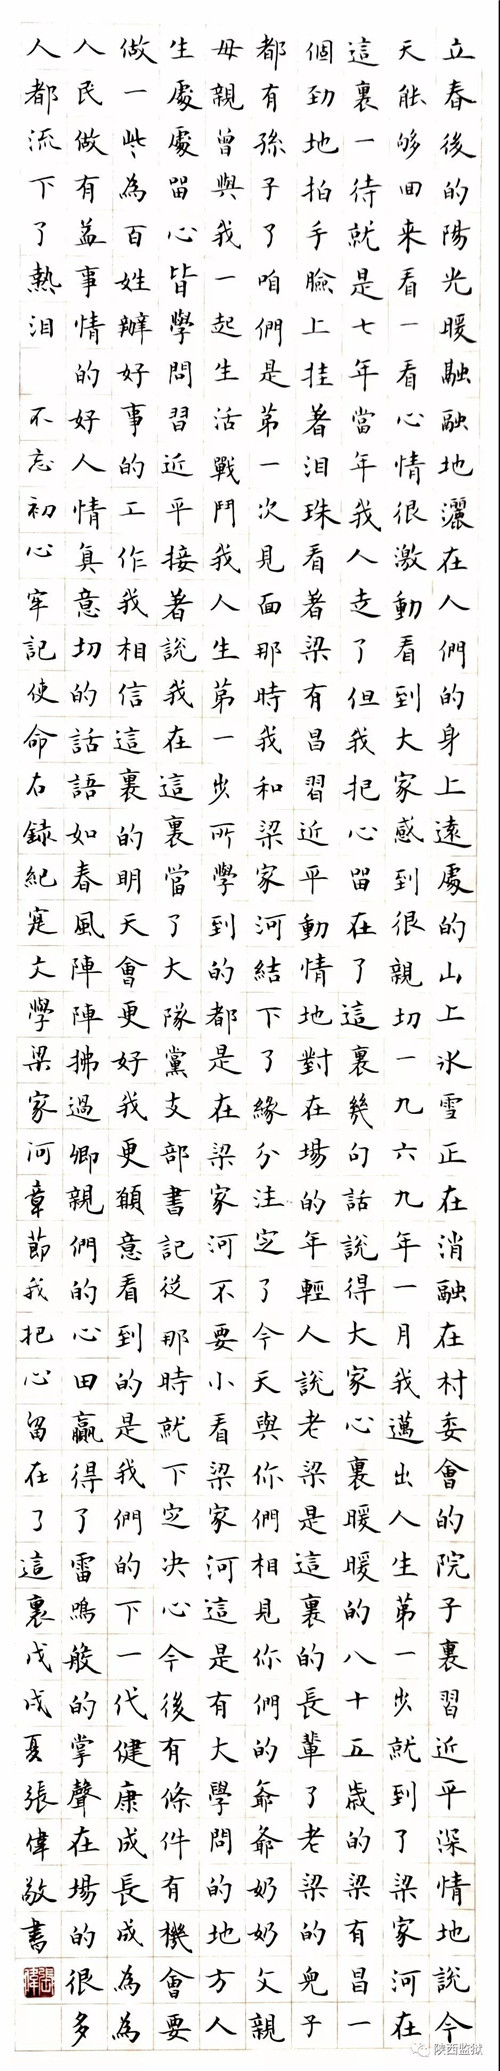 立春後的陽光暖融融地灑在人們的身上遠處的山上冰雪正在消融在村委會的院子裏習近平深情地說今
天能够回來看一看心情很激動看到大家感到很親切一九六九年一月我邁出人生第一步就到了梁家河在
這裏一待就是七年當年我人走了但我把心留在了這裏幾句話說得大家心裏暖暖的八十五歲的梁有昌一
個勁地拍手臉上挂着泪珠看着梁有昌習近平動情地對在場的年輕人說老梁是這裏的長輩了老梁的兒子
都有孫子了咱們是第一次見面那時我和梁家河結下了緣分注定了今天與你們相見你們的爺爺奶奶父親
母親曾與我一起生活戰鬥我人生第一步所學到的都是在梁家河不要小看梁家河這是有大學問的地方人
生處處留心皆學問習近平接著說我在這裏當了大隊黨支部書記從那時就下定决心今後有條件有機會要
做一些為百姓辦好事的工作我相信這裏的明天會更好我更願意看到的是我們的下一代健康成長成為為
人民做有益事情的好人情真意切的話語如春風陣陣拂過鄉親們的心田贏得了雷鳴般的掌聲在場的很多
人都流下了熱泪 不忘初心牢記使命右錄紀寔文學梁家河章節我把心留在了這裏戊戌夏張偉敬書
張偉
陕西监狱